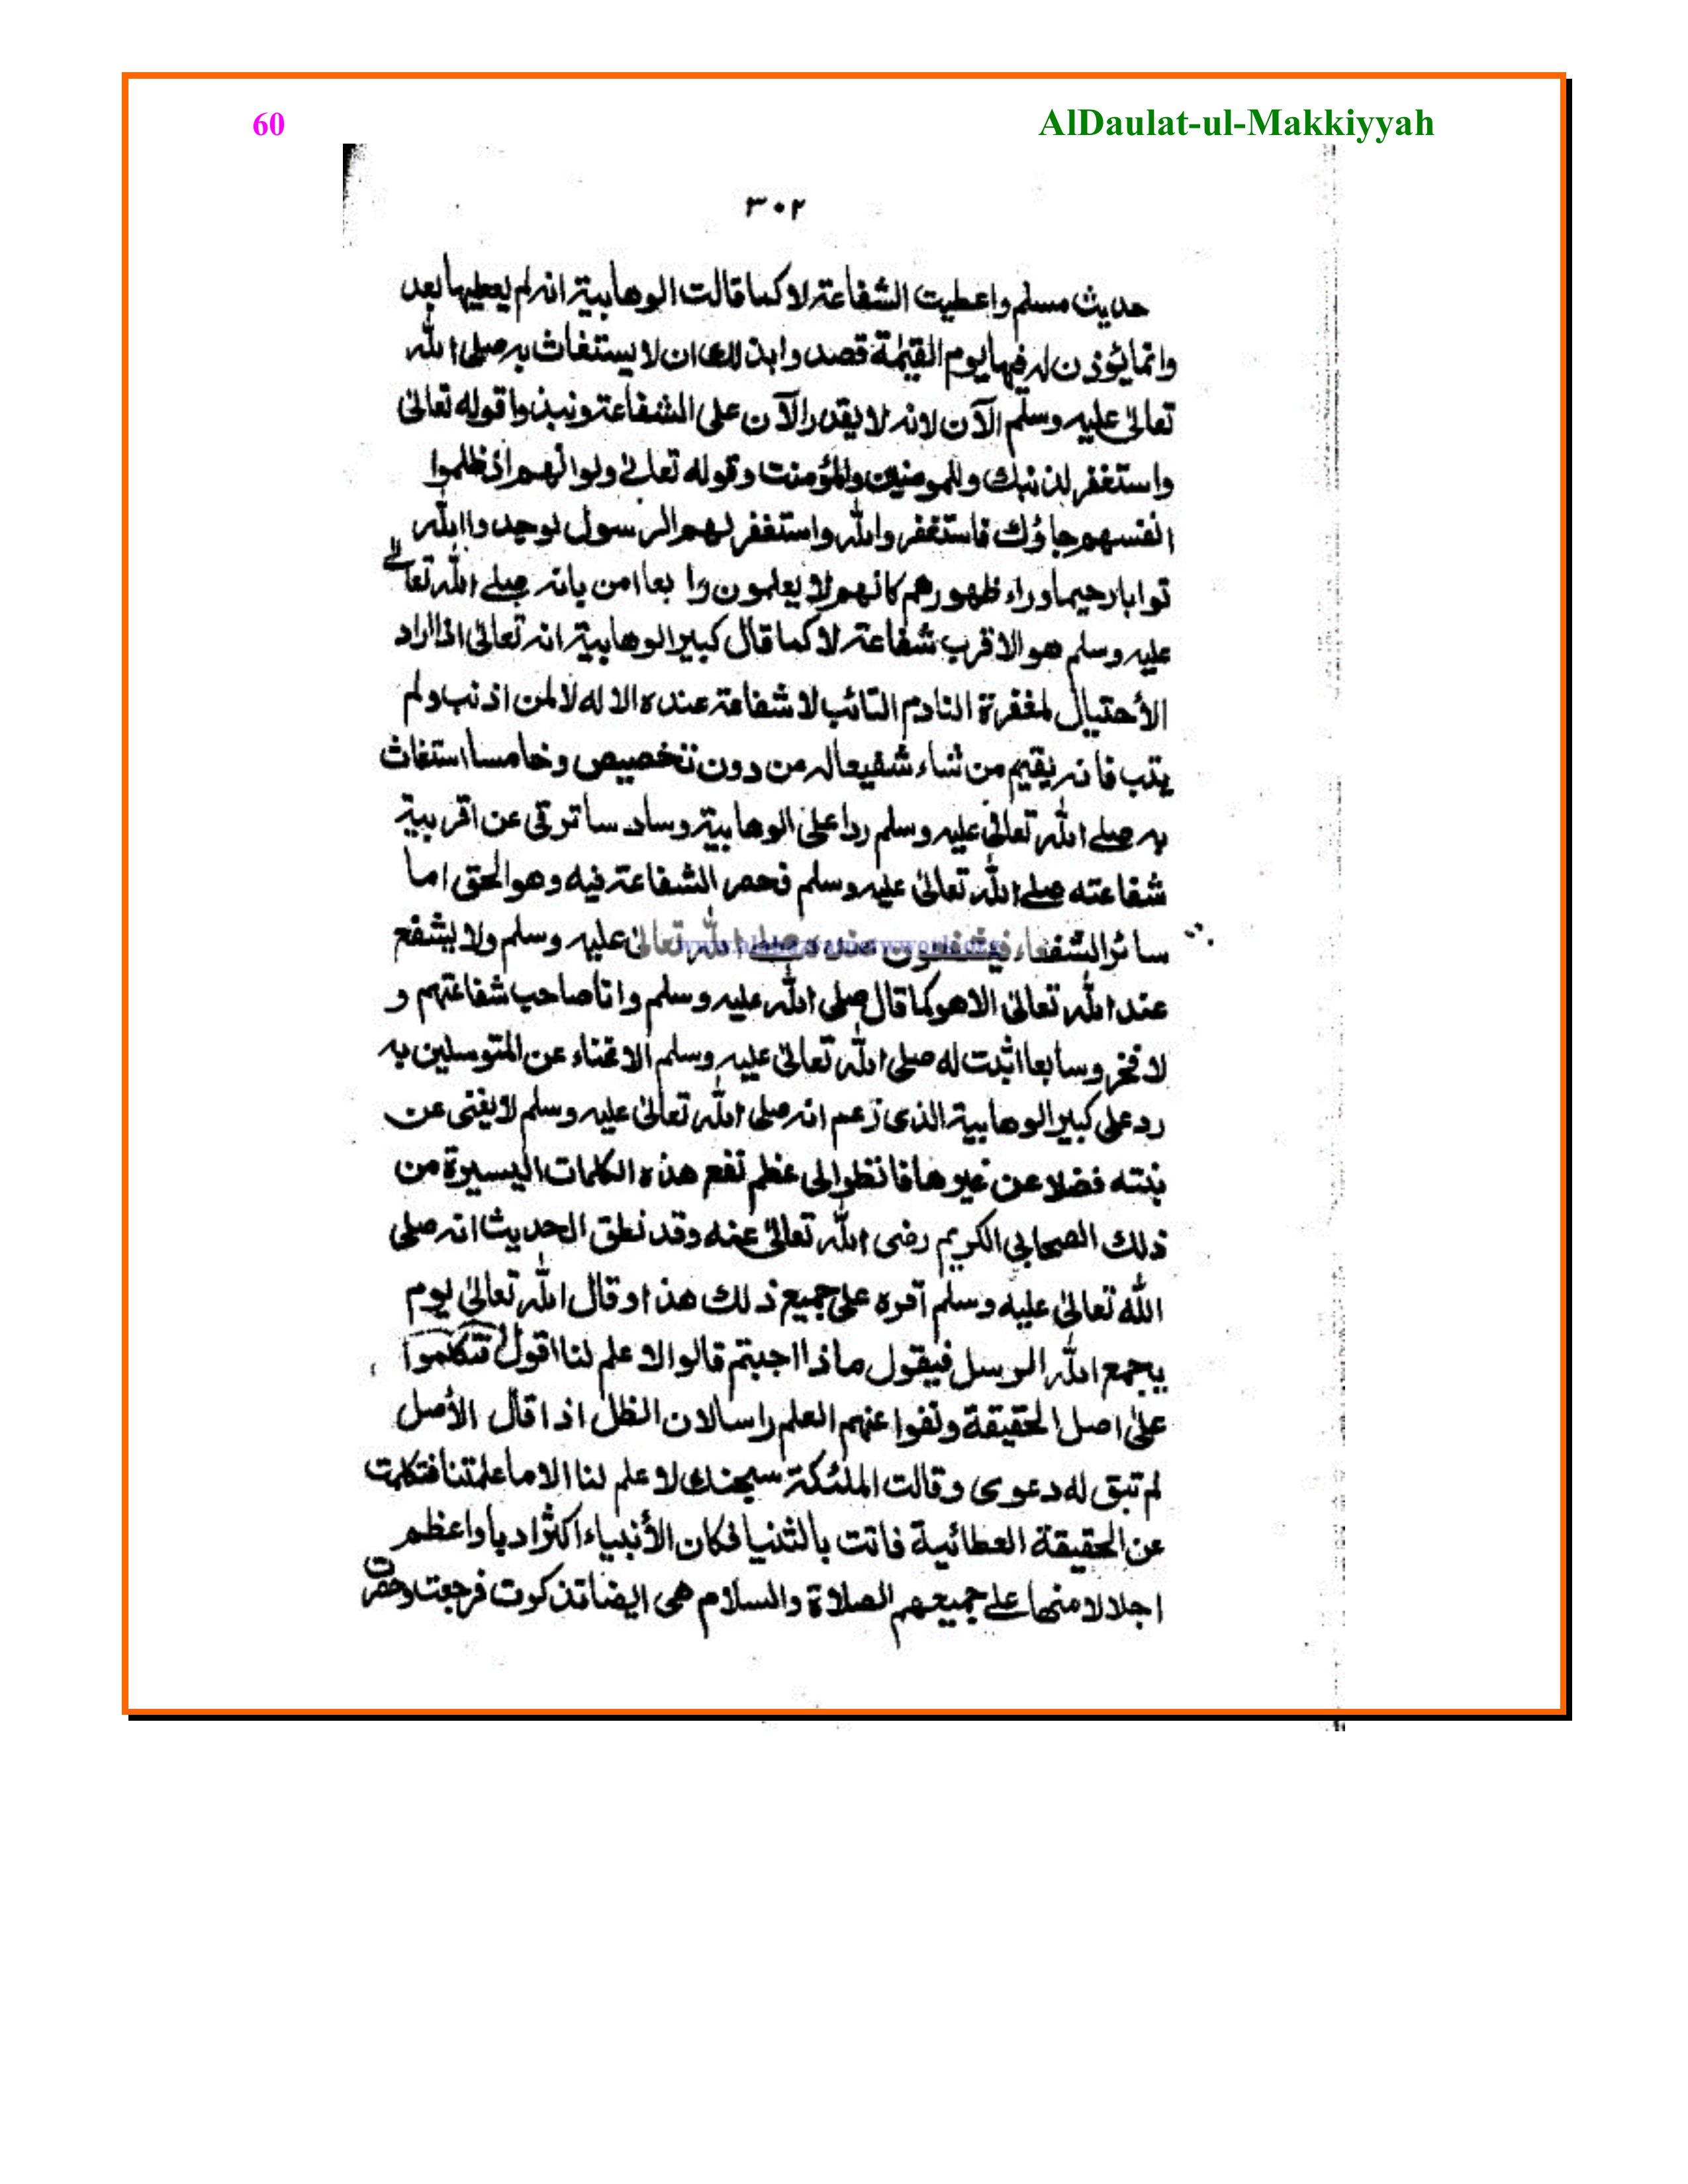 60 AlDaulat-ul-Makkiyyah
٣٠٢
حديث مسلم واعطيت الشفاعة لا كما قالت الوهابية انه لم يعطيها بعد
وانما يؤذن له فيها يوم القيٰمة قصدوا بذلك ان لا يستغاث به صلى الله
تعالىٰ عليه وسلم الآن لانه لا يقدر الآن على الشفاعة ونبذوا قوله تعالىٰ
واستغفر لذنبك وللمومنين والمؤمنت وقوله تعالىٰ ولو انهم اذ ظلموا
انفسهم جاؤك فاستغفروا الله واستغفر لهم الرسول لوجدوا الله
توابا رحيما وراء ظهورهم كانهم لا يعلمون رابعا امن بانه صلے الله تعالےٰ
عليه وسلم هو الاقرب شفاعة لا كما قال كبير الوهابية انه تعالىٰ اذا اراد
الأحتيال لمغفرة النادم التائب لا شفاعة عنده الا له لا لمن اذنب ولم
يتب فانه يقيم من شاء شفيعا له من دون تخصيص وخامسا استغاث
به صلے الله تعالىٰ عليه وسلم ردا على الوهابية وسادسا ترقى عن اقربية
شفاعته صلے الله تعالىٰ عليه وسلم فحصر الشفاعة فيه وهو الحق اما
سائر الشفعاء فيشفعون عنده صلے الله تعالىٰ عليه وسلم ولا يشفع
عند الله تعالىٰ الا هو كما قال صلى الله عليه وسلم وانا صاحب شفاعتهم و
لا فخر وسابعا اثبت له صلى الله تعالىٰ عليه وسلم الاغناء عن المتوسلين به
رد على كبير الوهابية الذى زعم انه صلى الله تعالىٰ عليه وسلم لا يغنى عن
بنته فضلا عن غيرها فانظر الى عظم نفع هذه الكلمات اليسيرة من
ذلك الصحابي الكريم رضى الله تعالىٰ عنه وقد نطق الحديث انه صلى
الله تعالىٰ عليه وسلم اقره على جميع ذلك هذا وقال الله تعالىٰ يوم
يجمع الله الرسل فيقول ماذا اجبتم قالوا لا علم لنا اقول فتكلموا
علىٰ اصل الحقيقة ونفوا عنهم العلم راسا لان الظل اذا قال الأصل
لم تبق له دعوى وقالت الملئكة سبحنك لا علم لنا الا ما علمتنا فتكلمت
عن الحقيقة العطائية فاتت بالثنيا فكان الأنبياء اكثر ادبا واعظم
اجلالا منها علے جميعهم الصلاة والسلام هى ايضا تذكرت فرجعت وحصرت